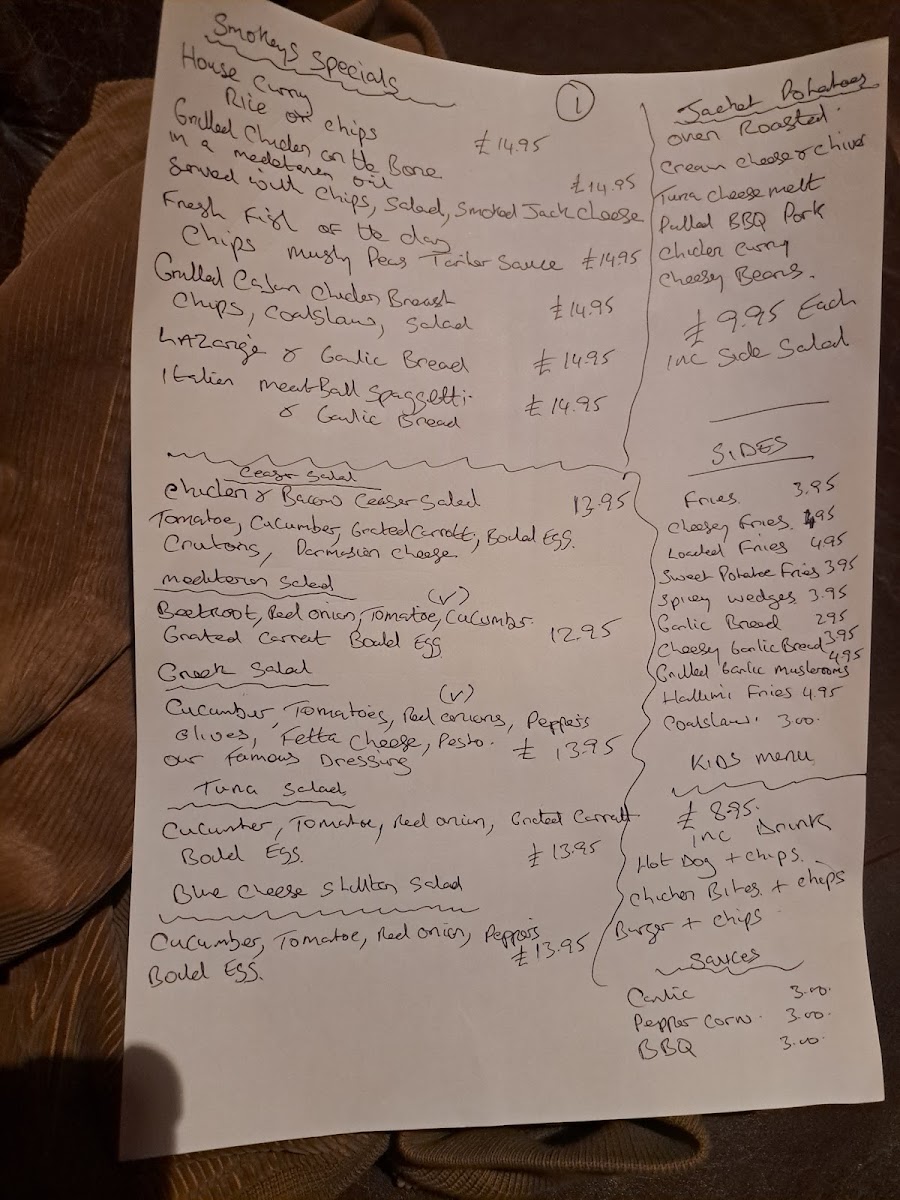 Smokeys Specials
①
House Curry
Rice or chips £14.95
Grilled Chicken on the Bone
in a medeteren oil £14.95
Served with Chips, Salad, Smoked Jack Cheese
Fresh Fish of the day
Chips mushy Peas Tarter Sauce £14.95
Grilled Cajun Chicken Breast
Chips, Coalslaw, Salad £14.95
LAZange & Garlic Bread £14.95
Italien meatBall Spaggetti
& Garlic Bread £14.95
Ceaser Salad
Chicken & Bacons Ceaser Salad 13.95
Tomatoe, Cucumber, Grated Carrott, Boiled Egg.
Crutons, Parmasian Cheese
mediteren Salad
(v)
Beetroot, Red onion, Tomatoe, Cucumber
Grated Carrott Boild Egg 12.95
Greek Salad
(v)
Cucumber, Tomatoes, Red onions, Peppers
Olives, Fetta Cheese, Pesto.
our Famous Dressing £13.95
Tuna Salad
Cucumber, Tomatoe, Red onion, Grated Carratt
Boild Egg. £13.95
Blue Cheese Stillton Salad
Cucumber, Tomatoe, Red onion, Peppers
Boild Egg. £13.95
Jacket Potatoes
Oven Roasted.
Cream cheese & chives
Tuna cheese melt
Pulled BBQ Pork
Chicken Curry
Cheesy Beans.
£9.95 Each
inc Side Salad
SIDES
Fries 3.95
Cheesey Fries 4.95
Loaded Fries 4.95
Sweet Potatoe Fries 3.95
Spicey wedges 3.95
Garlic Bread 2.95
Cheesy Garlic Bread 3.95
Grilled Garlic mushrooms 4.95
Hallimi Fries 4.95
Coalslaw. 3.00.
KIDS menu
£8.95.
inc Drink
Hot Dog + chips.
Chicken Bites. + chips
Burger + chips
Sauces
Garlic 3.00.
Pepper Corn. 3.00.
BBQ 3.00.